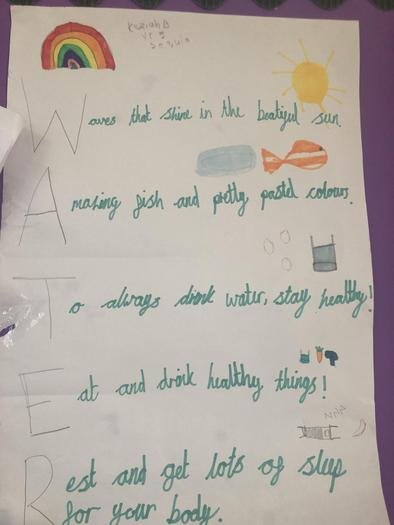 Yr 5
Waves that shine in the beatiful sun.
Amazing fish and pretty pastel colours.
To always drink water, stay healthy!
Eat and drink healthy things!
Rest and get lots of sleep
for your body.